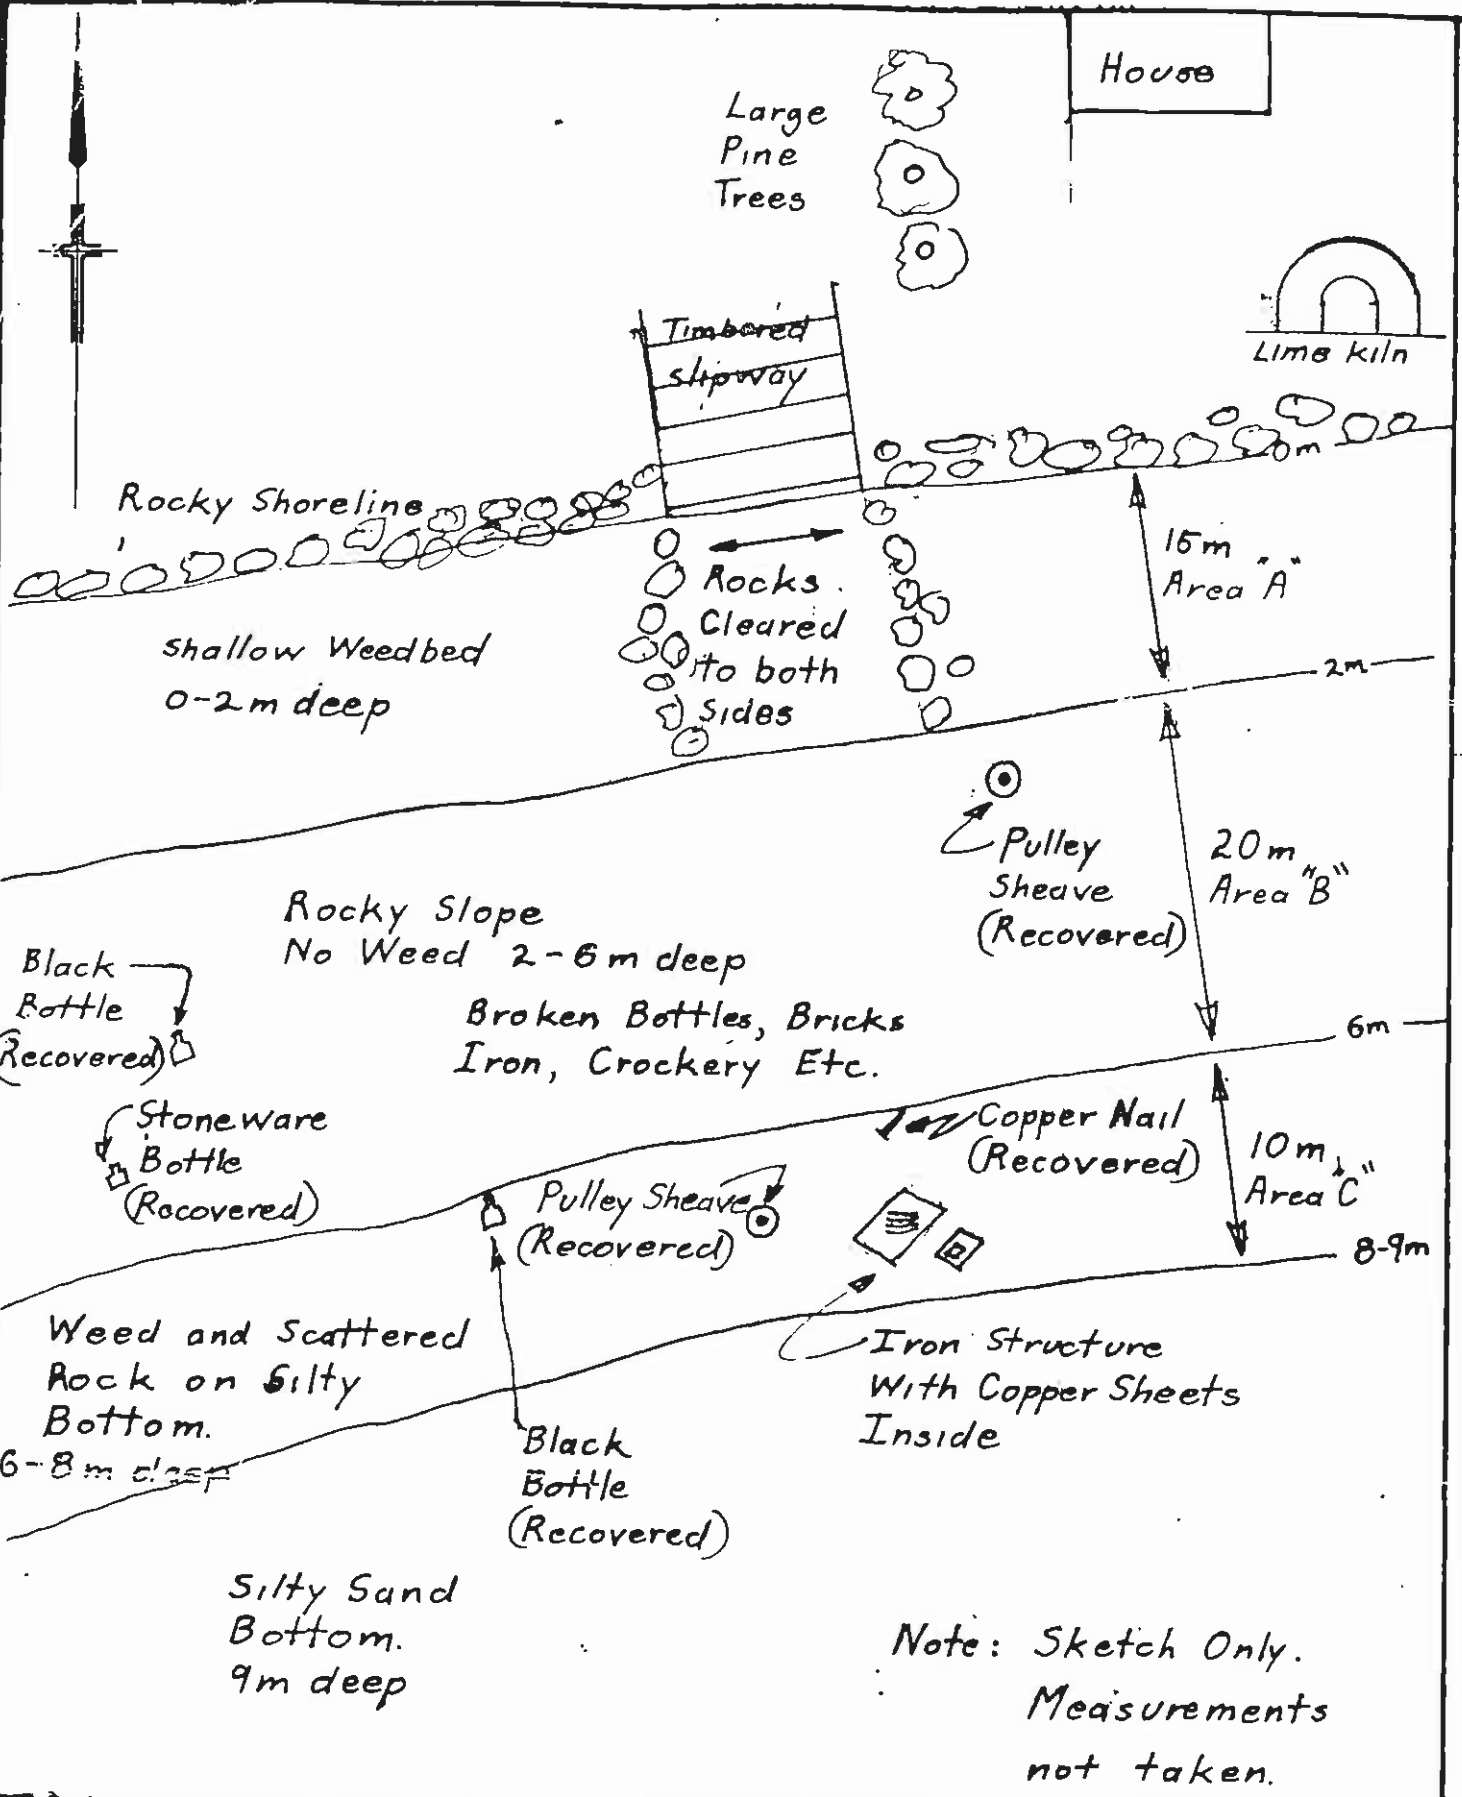 House
Large
Pine
Trees
Timbered
slipway
Lime kiln
0m
Rocky Shoreline
15m
Area "A"
Rocks
Cleared
to both
Sides
shallow Weedbed
0-2m deep
2m
Pulley
Sheave
(Recovered)
20m
Area "B"
Rocky Slope
No Weed 2-6m deep
Black
Bottle
(Recovered)
Broken Bottles, Bricks
Iron, Crockery Etc.
6m
Stoneware
Bottle
(Recovered)
Copper Nail
(Recovered)
10m
Area "C"
Pulley Sheave
(Recovered)
8-9m
Weed and Scattered
Rock on Silty
Bottom.
6-8m deep
Iron Structure
With Copper Sheets
Inside
Black
Bottle
(Recovered)
Silty Sand
Bottom.
9m deep
Note: Sketch Only.
Measurements
not taken.